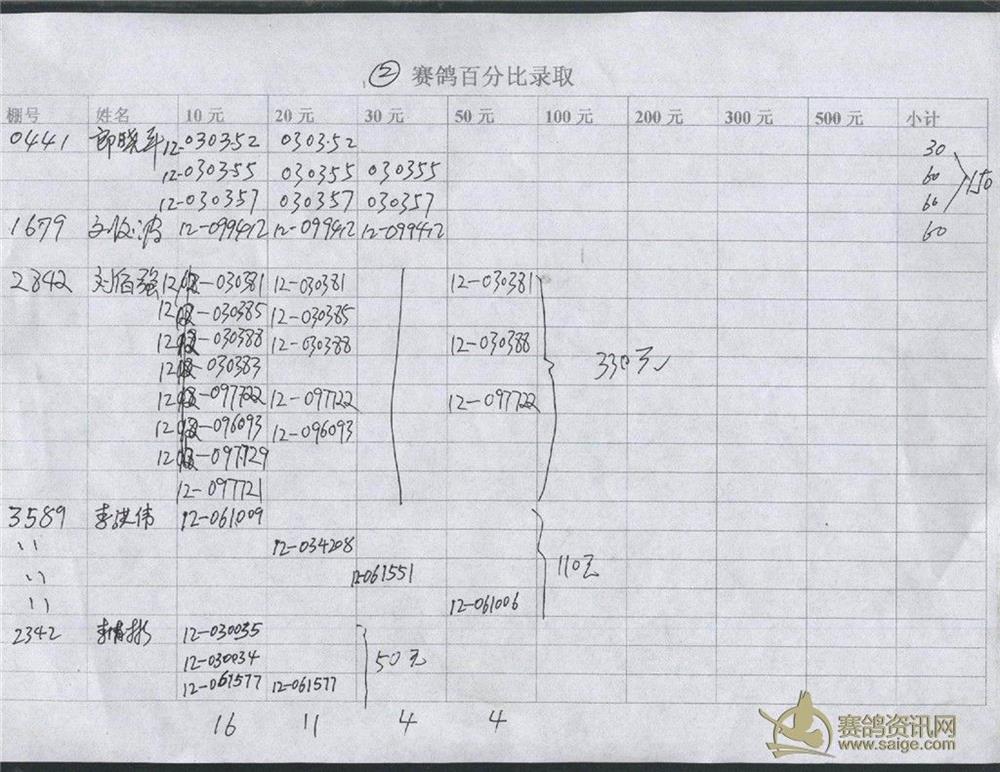 ② 赛鸽百分比录取
棚号 姓名 10元 20元 30元 50元 100元 200元 300元 500元 小计
0441 郎晓军 12-030352 030352 30
12-030355 030355 030355 60
12-030357 030357 030357 60 150
1679 12-099412 12-099412 12-099412 60
2842 刘佰强 12-030381 12-030381 12-030381
12-030385 12-030385
12-030388 12-030388 12-030388
12-030383 330元
12-097722 12-097722 12-097722
12-096093 12-096093
12-097729
12-097721
3589 李洪伟 12-061009
〃 12-034208
〃 12-061551 110元
〃 12-061006
2342 12-030035
12-030034 50元
12-061577 12-061577
16 11 4 4
赛鸽资讯网
www.saige.com